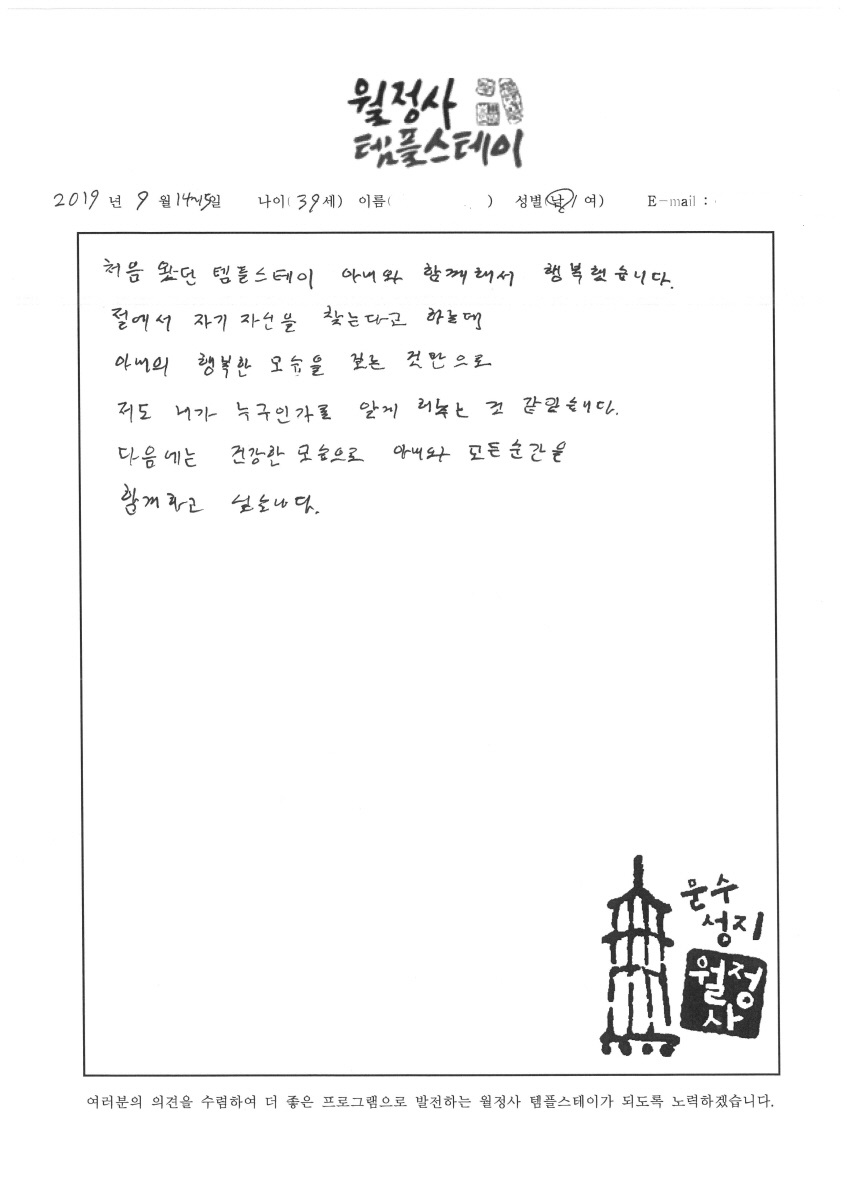 월정사
템플스테이
2019 년 9 월 14~15일 나이(39세) 이름( ) 성별(남/여) E-mail :
처음 왔던 템플스테이 아내와 함께해서 행복했습니다.
절에서 자기 자신을 찾는다고 하는데
아내의 행복한 모습을 보는 것만으로
저도 내가 누구인가를 알게 해주는 것 같았습니다.
다음에는 건강한 모습으로 아내와 모든순간을
함께하고 싶습니다.
문수
성지
월정
사
여러분의 의견을 수렴하여 더 좋은 프로그램으로 발전하는 월정사 템플스테이가 되도록 노력하겠습니다.